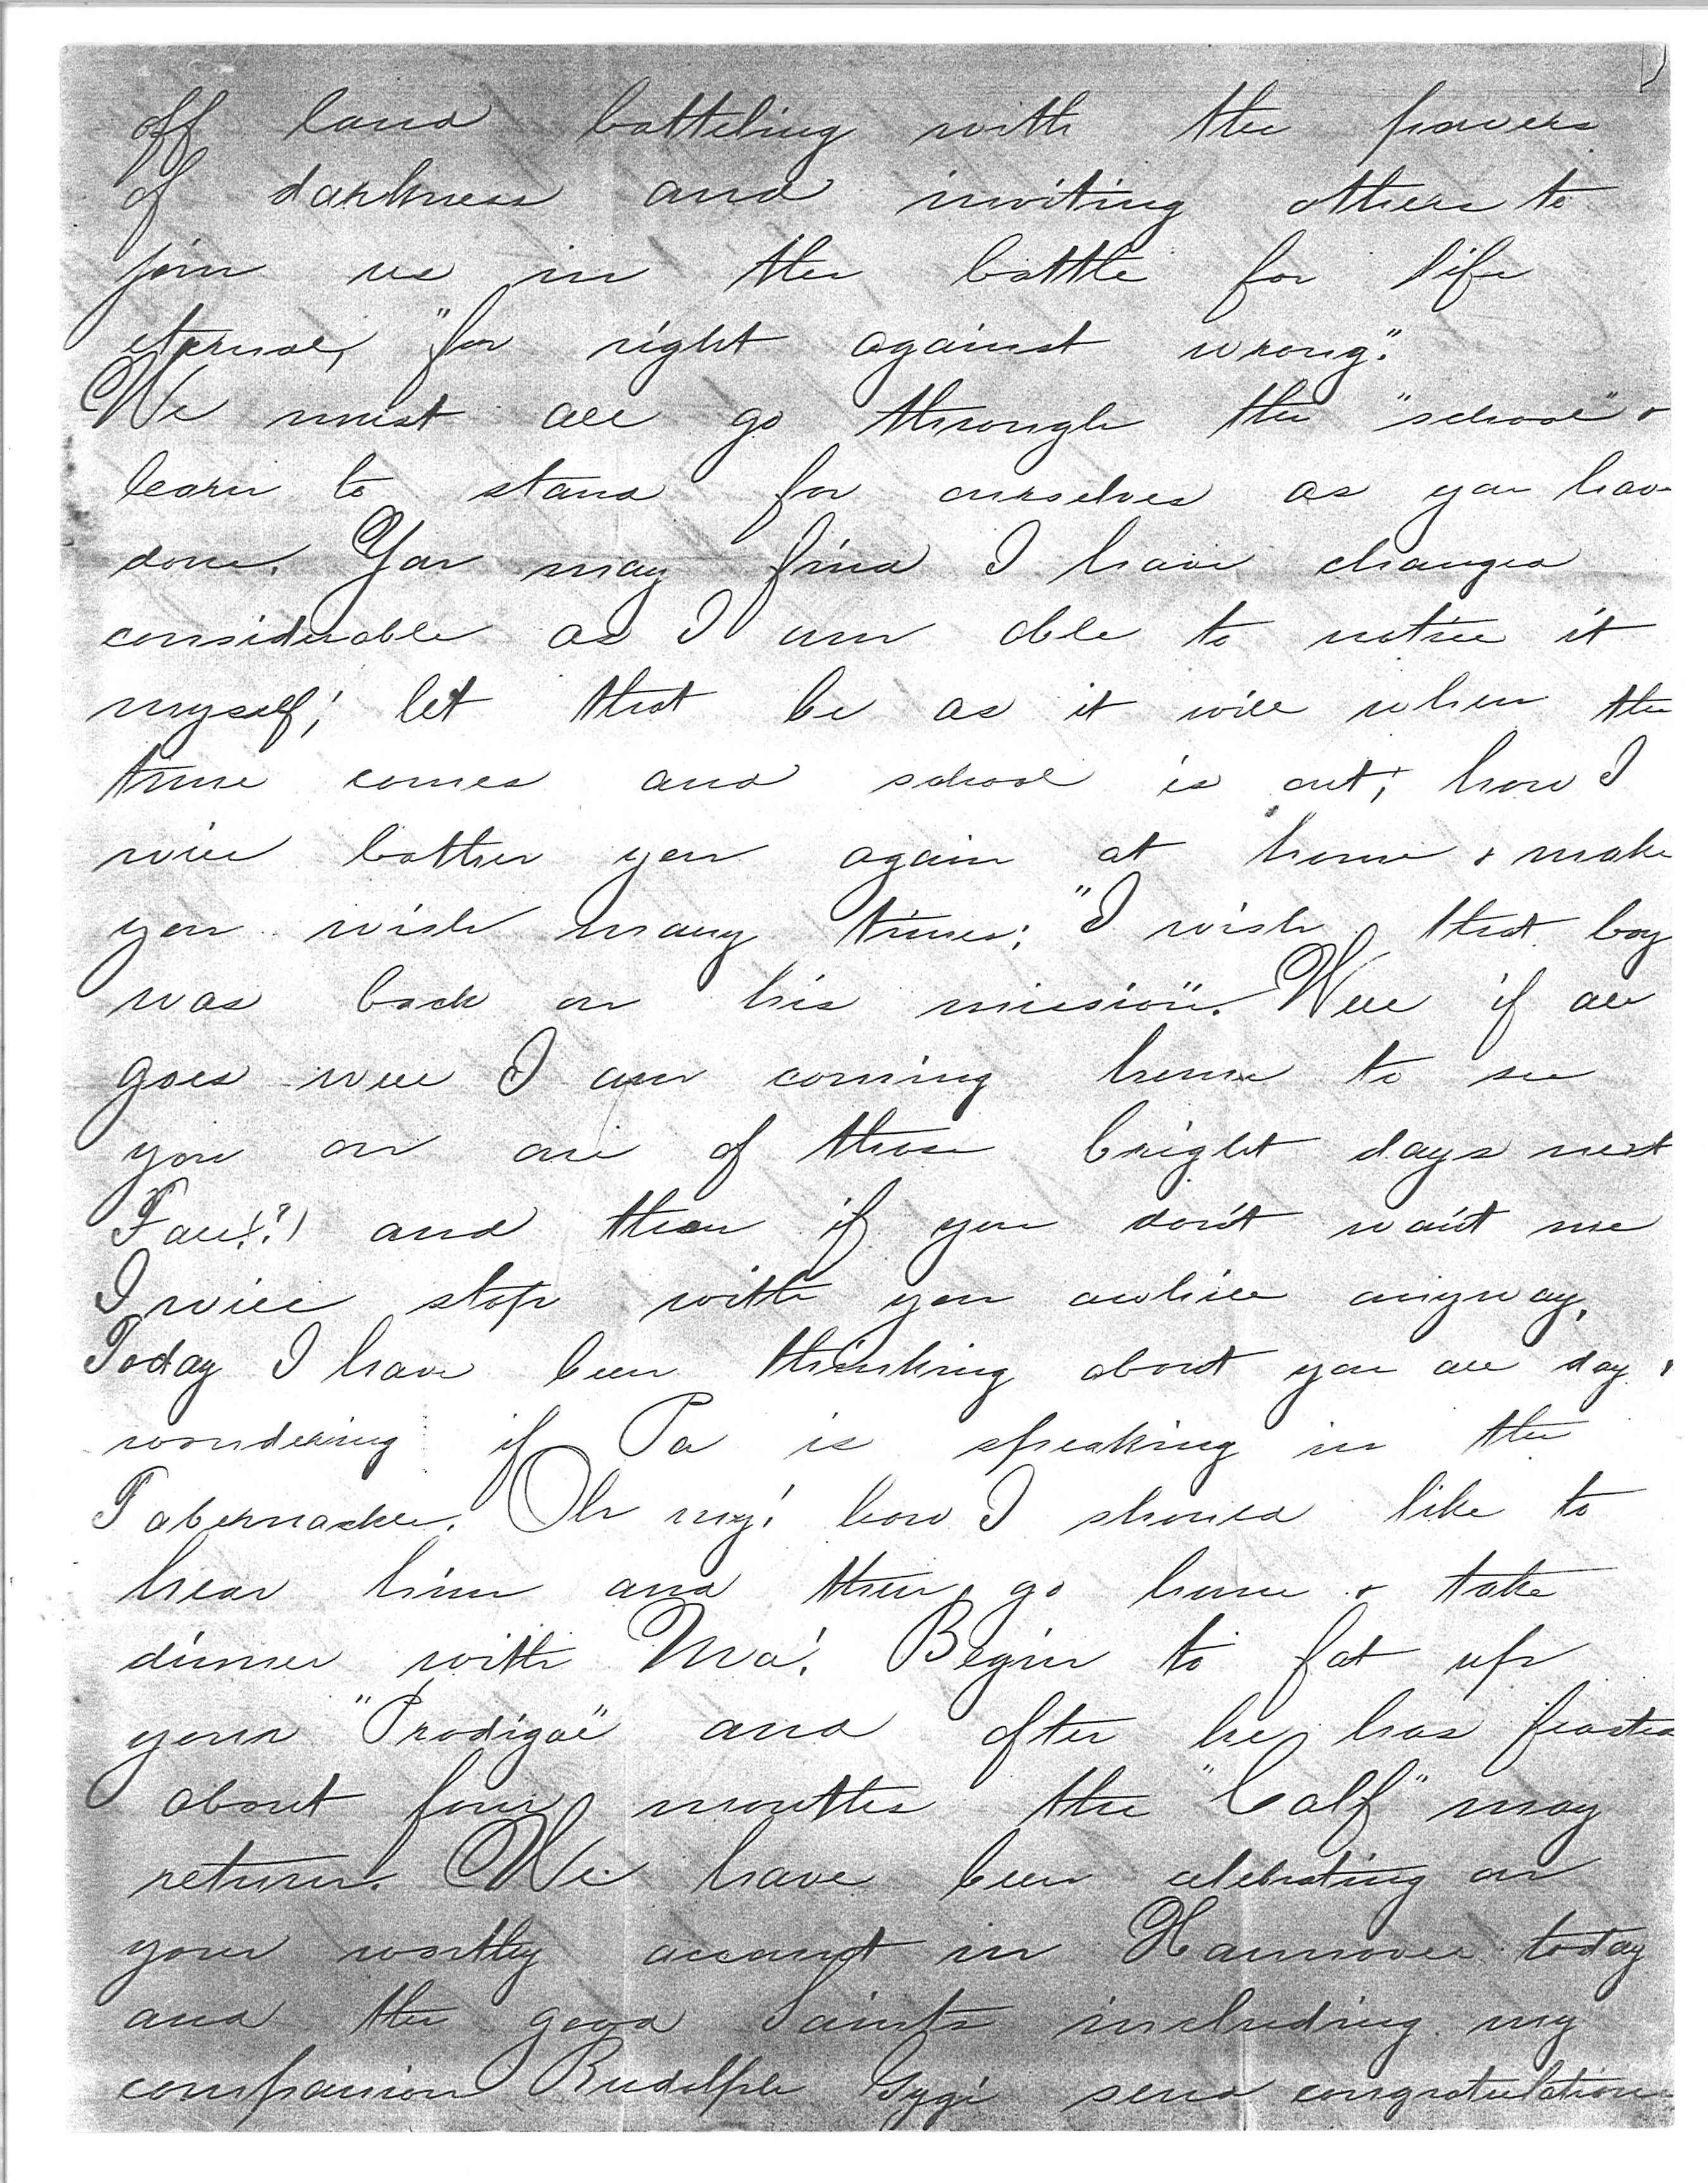 off land batteling with the powers
of darkness and inviting others to
join us in the battle for life
eternal, "for right against wrong."
We must all go through the "school" &
learn to stand for ourselves as you have
done. You may find I have changed
considerable as I am able to notice it
myself; let that be as it will when the
time comes and school is out; how I
will bother you again at home & make
you wish many times: "I wish that boy
was back on his mission". Well if all
goes well I am coming home to see
you on one of those bright days next
Fall(?) and then if you don't want me
I will stop with you awhile anyway.
Today I have been thinking about you all day &
wondering if Pa is speaking in the
Tabernacle. Oh my! how I should like to
hear him and then go home & take
dinner with Ma! Begin to fat up
your "Prodigal" and after he has feasted
about four months the "Calf" may
return. We have been celebrating on
your worthy account in Hannover today
and the good Saints including my
companion Rudolph Gygi send congratulations